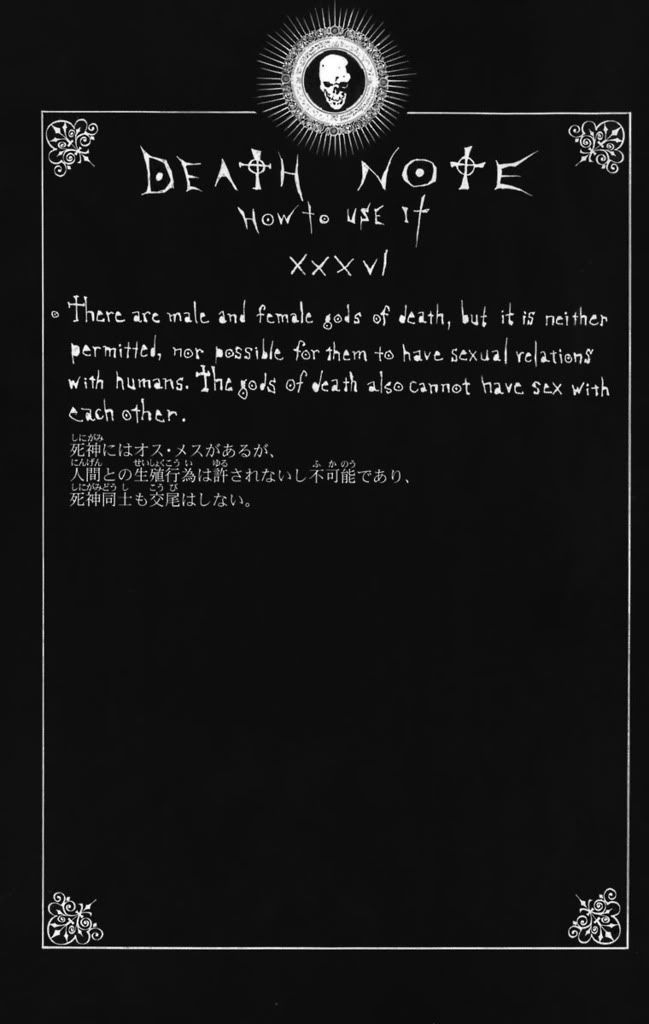 DEATH NOTE
How to use it
XXXVI
○ There are male and female gods of death, but it is neither
permitted, nor possible for them to have sexual relations
with humans. The gods of death also cannot have sex with
each other.
しにがみ
死神にはオス・メスがあるが、
にんげん せいしょくこうい ゆる ふかのう
人間との生殖行為は許されないし不可能であり、
しにがみどうし こうび
死神同士も交尾はしない。